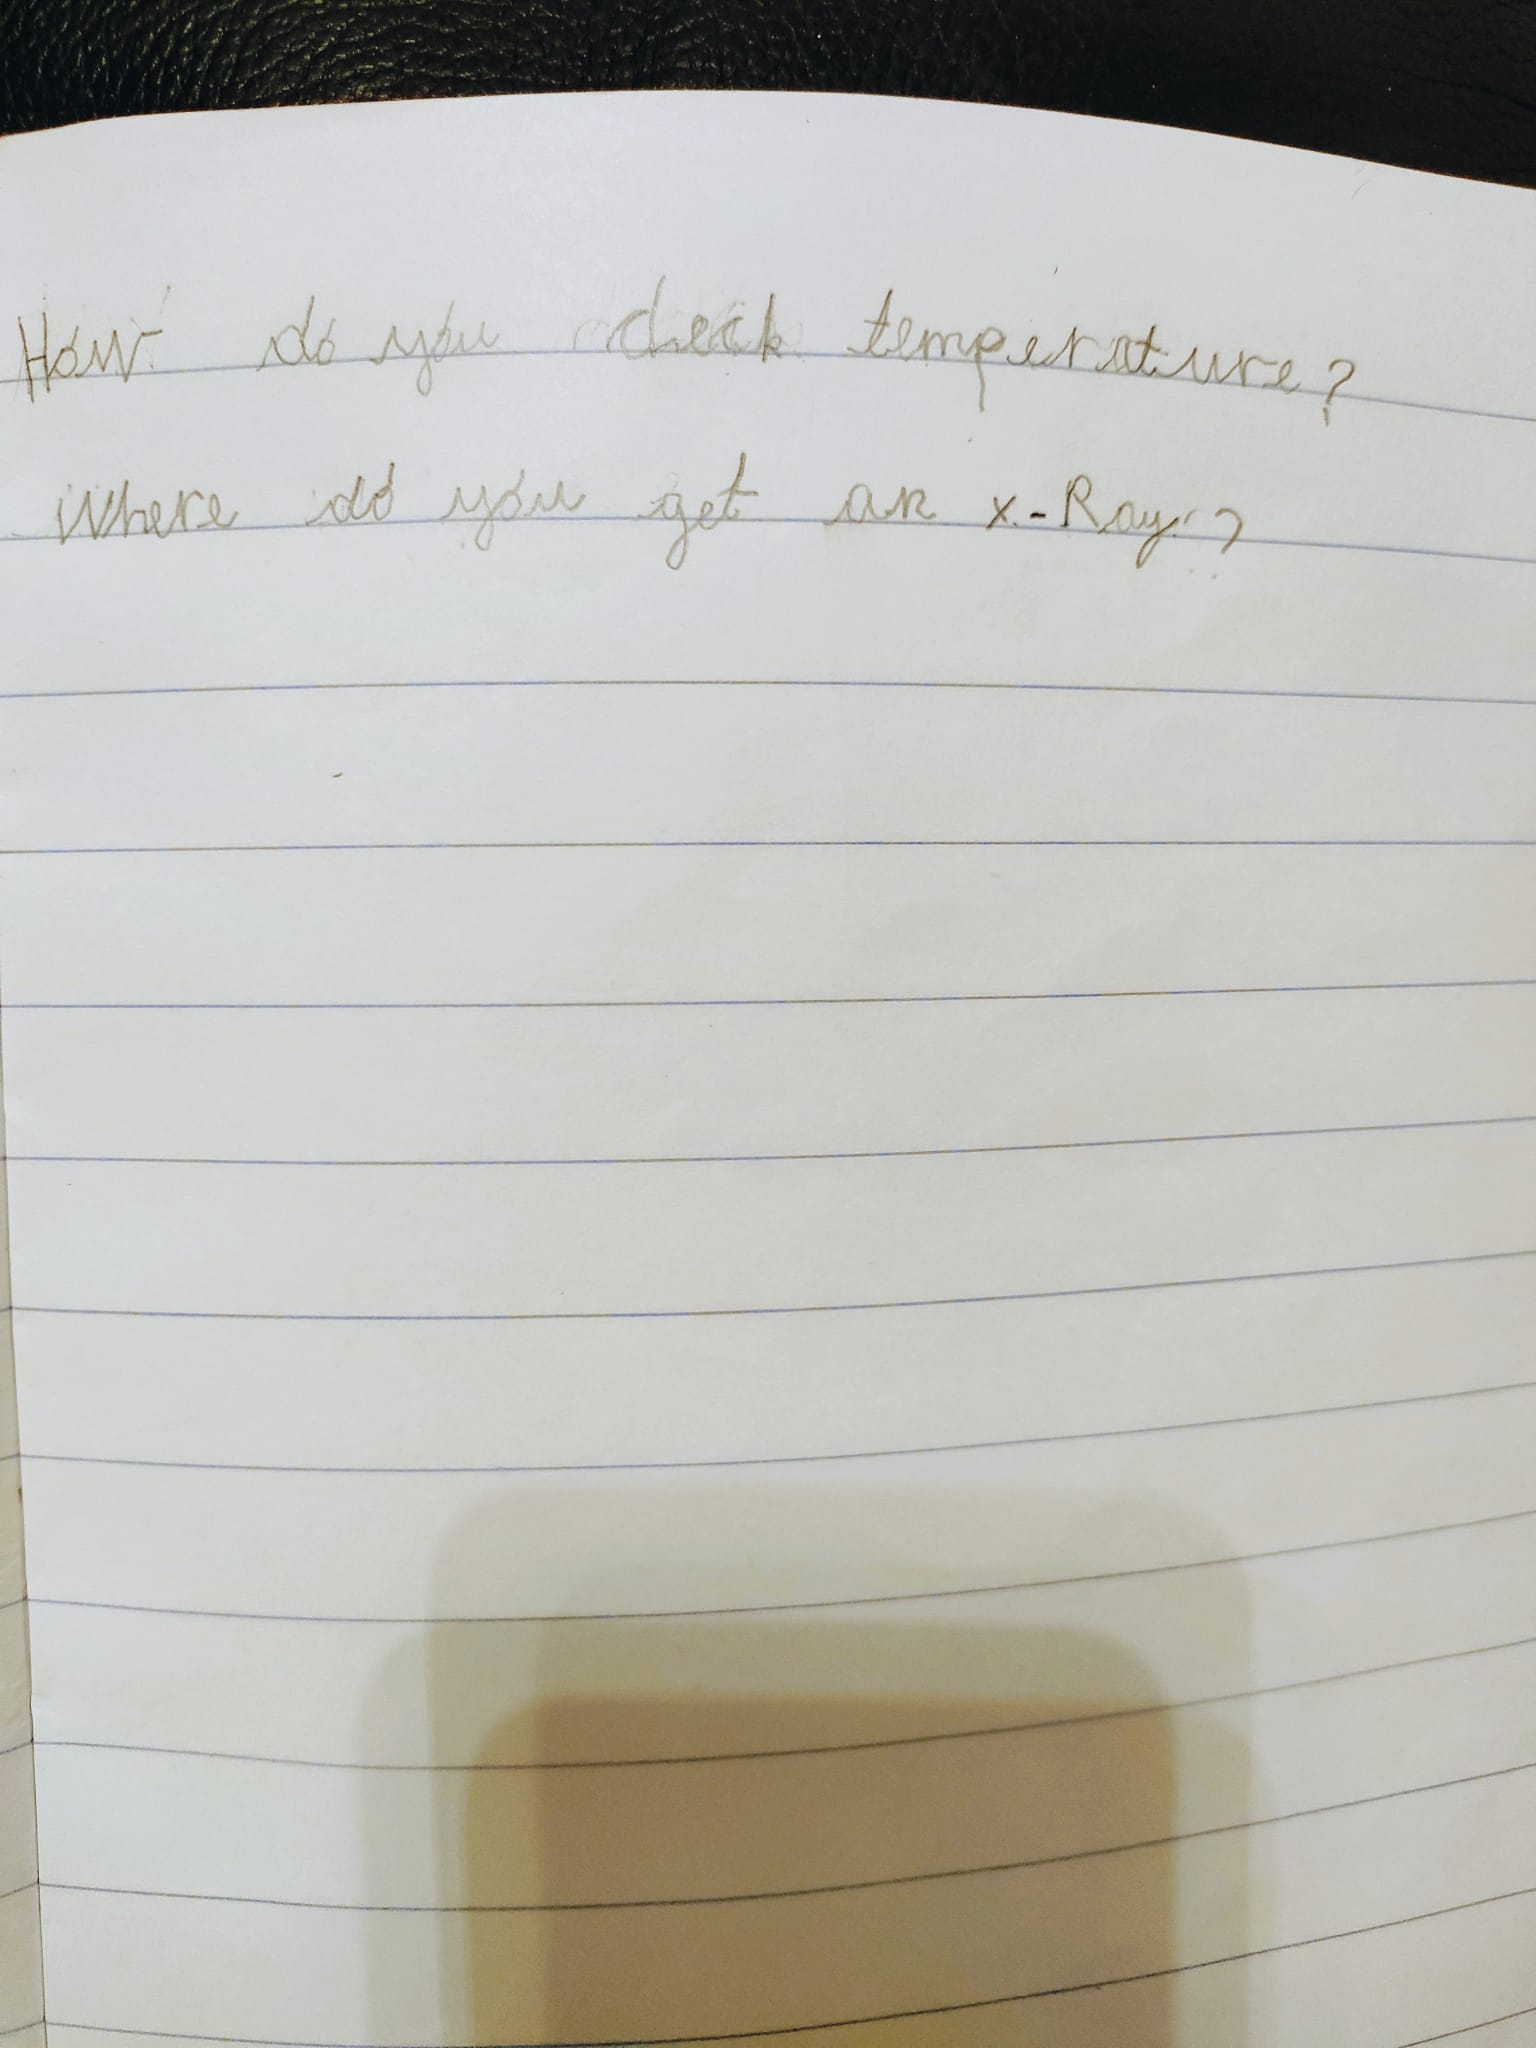 How do you check temperature?
Where do you get an x-Ray?